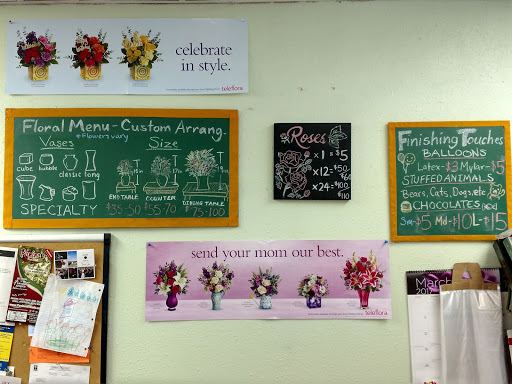 celebrate
in style.
teleflora
Floral Menu - Custom Arrang.
*Flowers vary
Vases
Size
cube
bubble
classic
long
SPECIALTY
END TABLE
COUNTER
DINING TABLE
$35-50
$55-70
$75-100
Roses
x 1 = $5
x 12 = $50
$60
x 24 = $100
$110
Finishing Touches
BALLOONS
Latex-$3 Mylar-$5
STUFFED ANIMALS
Bears, Cats, Dogs, etc
CHOCOLATES
Sm-$5 Md-$10 L-$15
send your mom our best.
teleflora
March
2017